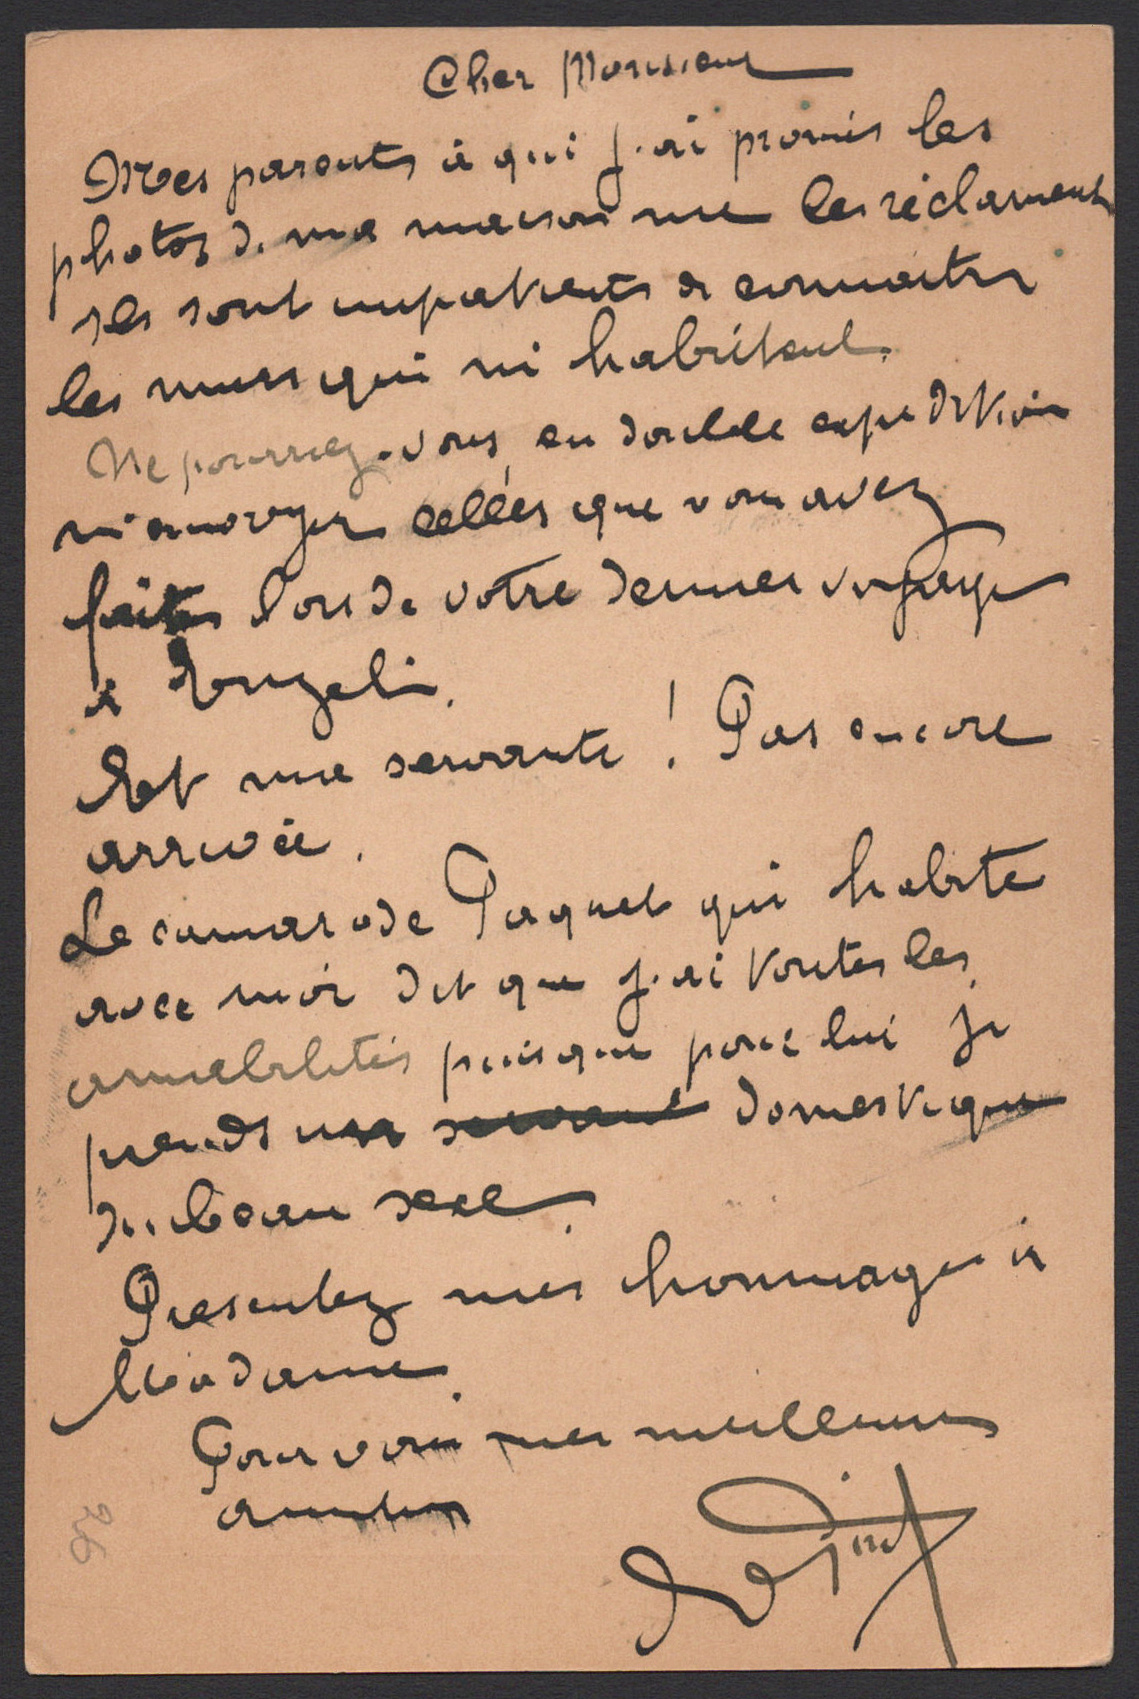 Cher Monsieur
Mes parents à qui j'ai promis les
photos de ma maison me les réclament
Ils sont impatients de connaitre
les murs qui m'habritent.
Ne pourriez-vous, en double expédition
m'envoyer celles que vous avez
faites lors de votre dernier voyage
à
Et ma servante ! Pas encore
arrivée.
Le camarade Paquet qui habite
avec moi dit que j'ai toutes les
amabilités puisque pour lui je
prends un domestique
du beau sexe.
Présentez mes hommages à
Madame.
Pour vous mes meilleures
amitiés
26